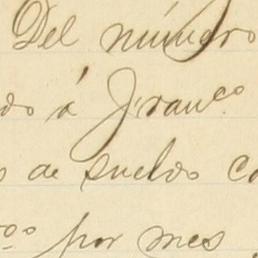 Del número
do á Franco.
s de sueldo co
por mes.